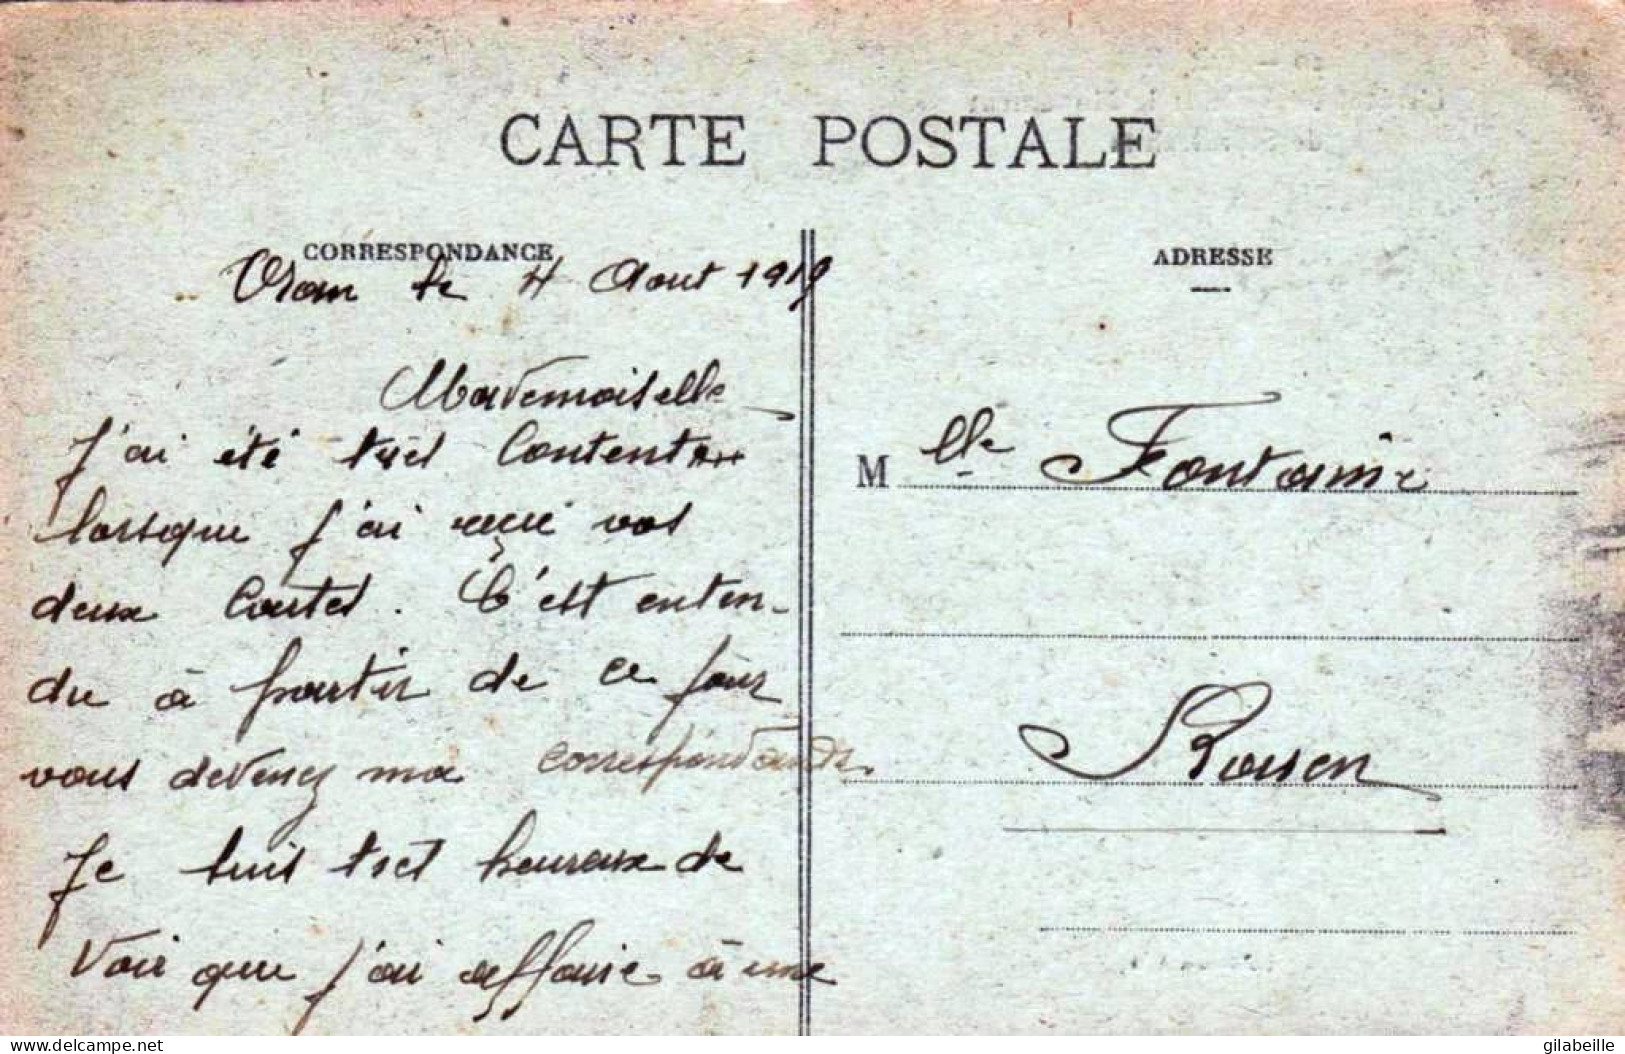 CARTE POSTALE
CORRESPONDANCE
Oran le 4 Aout 1919
Mademoiselle
J'ai été très Content
lorsque j'ai reçue vos
deux Cartes. C'est enten-
du à partir de ce jour
vous devenez ma correspondante
Je suis très heureux de
Voir que j'ai affaire à une
ADRESSE
Mlle Fontaine
Rouen
delcampe.net
gilabeille